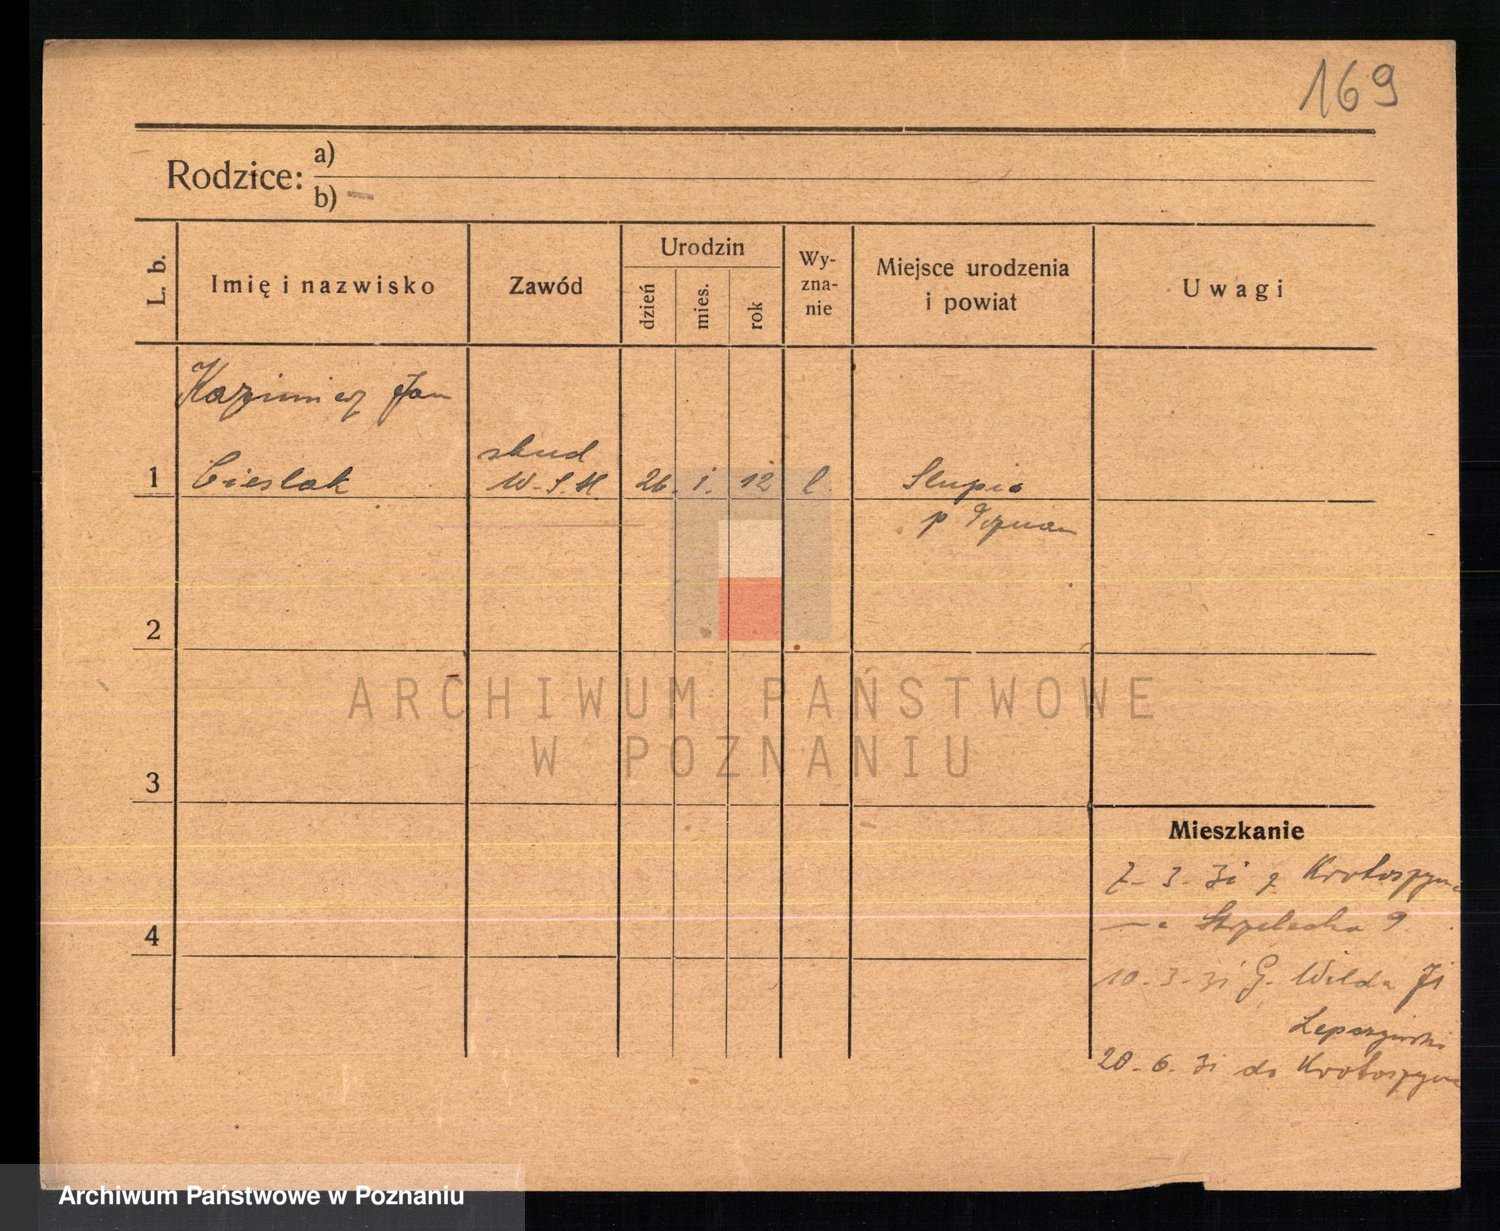 169
Rodzice: a)
b) —
L. b.
Imię i nazwisko
Zawód
Urodzin
dzień
mies.
rok
Wy-
zna-
nie
Miejsce urodzenia
i powiat
Uwagi
Kazimierz Jan
1 Cieslak
stud
W.S.H
26. 1. 12
Slupia
p
2
3
4
Mieszkanie
7-3-31 z Krotoszyna
Strzelecka 9
10-3-31 G. Wilda 71
20-6-31 do Krotoszyna
ARCHIWUM PAŃSTWOWE
W POZNANIU
Archiwum Państwowe w Poznaniu